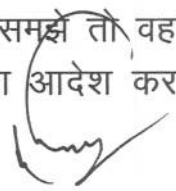 समझे तो वह
आदेश कर